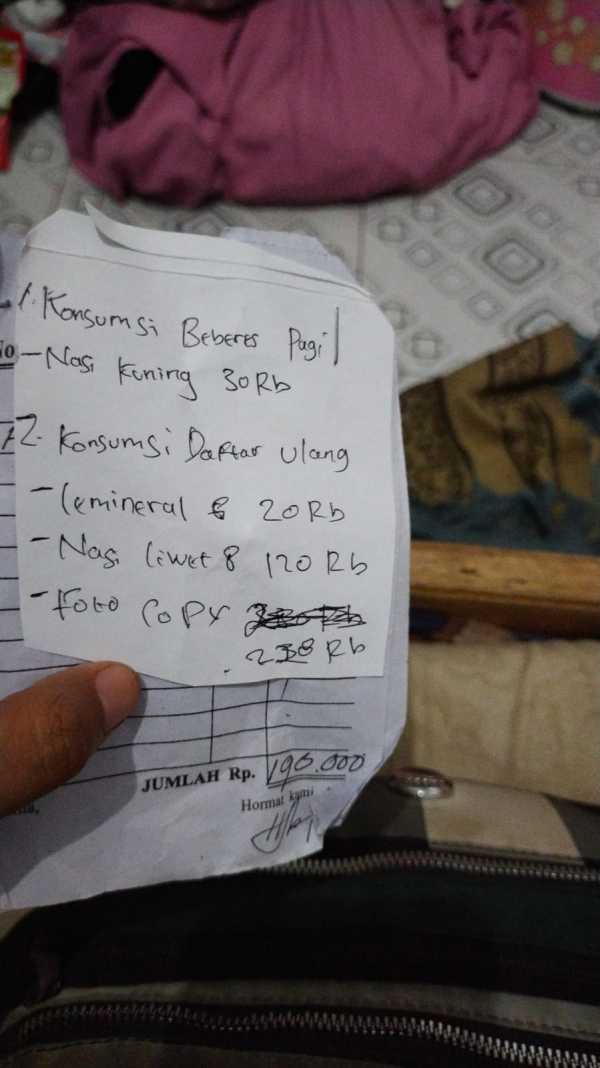 1. Konsumsi Beberes Pagi
No
- Nasi Kuning 30 Rb
2. Konsumsi Daftar Ulang
- Lemineral 20 Rb
- Nasi Liwet 8 120 Rb
- Foto Copy
238 Rb
JUMLAH Rp. 190.000
Hormat kami